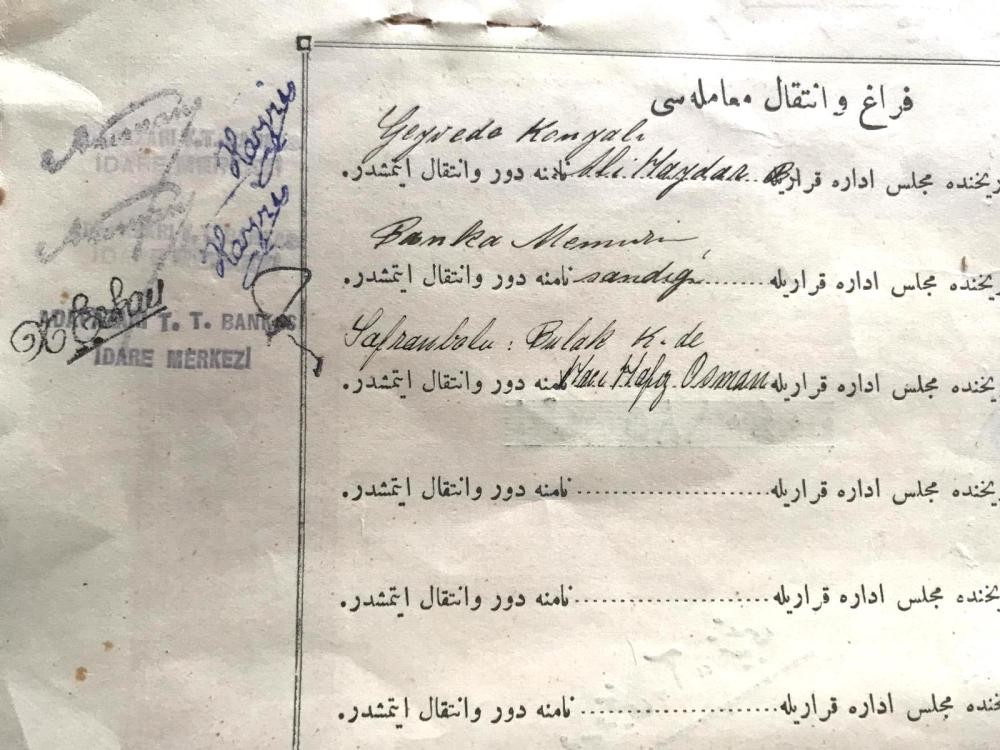 فراغ و انتقال معامله‌سی
Geyvede Konyalı
یخنده مجلس اداره قراریله Ali Haydar نامنه دور وانتقال ایتمشدر.
Banka Memurin
یخنده مجلس اداره قراریله......... sandığı نامنه دور وانتقال ایتمشدر.
Safranbolu : Bulak K. de
یخنده مجلس اداره قراریله Hacı Hafız Osman نامنه دور وانتقال ایتمشدر.
یخنده مجلس اداره قراریله........................ نامنه دور وانتقال ایتمشدر.
یخنده مجلس اداره قراریله........................ نامنه دور وانتقال ایتمشدر.
یخنده مجلس اداره قراریله........................ نامنه دور وانتقال ایتمشدر.
T. T.
İDARE MERKEZİ
Hayri
T. T.
İDARE MERKEZİ
Hayri
ADAPAZARI T. T. BANKASI
İDARE MERKEZİ